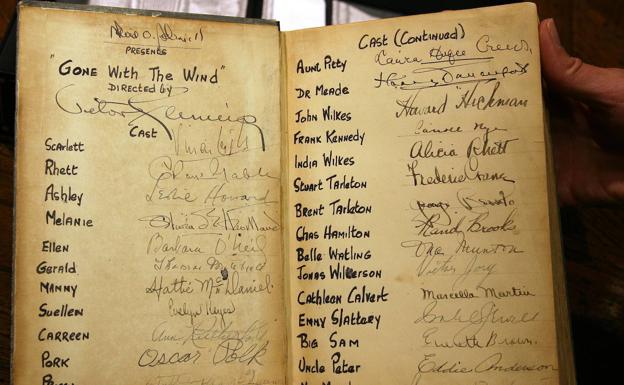 PRESENTS
"GONE WITH THE WIND"
DIRECTED by
Victor Fleming
CAST
Scarlett Vivien Leigh
Rhett Clark Gable
Ashley Leslie Howard
MELANIE Olivia de Havilland
ELLEN Barbara O'Neil
GERALD Thomas Mitchell
MAMMY Hattie McDaniel
SUELLEN Evelyn Keyes
CARREEN Ann Rutherford
PORK Oscar Polk
CAST (CONTINUED)
AUNT PITTY Laura Hope Crews
DR MEADE Harry Davenport
JOHN WILKES Howard Hickman
FRANK KENNEDY Carroll Nye
INDIA WILKES Alicia Rhett
STUART TARLETON
BRENT TARLETON
CHAS HAMILTON Rand Brooks
BELLE WATLING Ona Munson
JONAS WILKERSON Victor Jory
CATHLEEN CALVERT Marcella Martin
EMMY SLATTERY
BIG SAM Everett Brown
UNCLE PETER Eddie Anderson